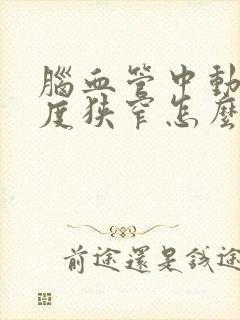 腦血管中動
度狹窄怎麼
前途還是錢途